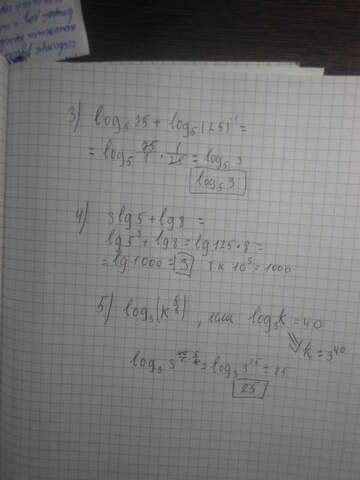 3) log₅75 + log₅(25)⁻¹ =
= log₅ 75/1 · 1/25 = log₅3
log₅3
4) 3lg5 + lg8 =
lg5³ + lg8 = lg125·8 =
= lg1000 = 3 т.к 10³ = 1000
5) log₃(k^(5/8)), если log₃k = 40
k = 3⁴⁰
= log₃3²⁵ = 25
25